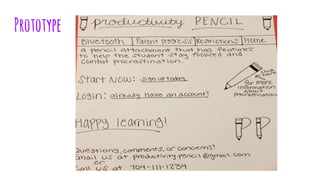 Prototype
productivity PENCIL
Bluetooth | Parent process | Restrictions | Home
a pencil attachment that has features
to help the student stay focused and
combat procrastination.
click here
for more
information
about
procrastination
Start Now: sign up today
Login: already have an account?
Happy learning!
PP
Questions, comments, or concerns?
Email us at productivitypencil@gmail.com
or
Call us at 704-111-1234